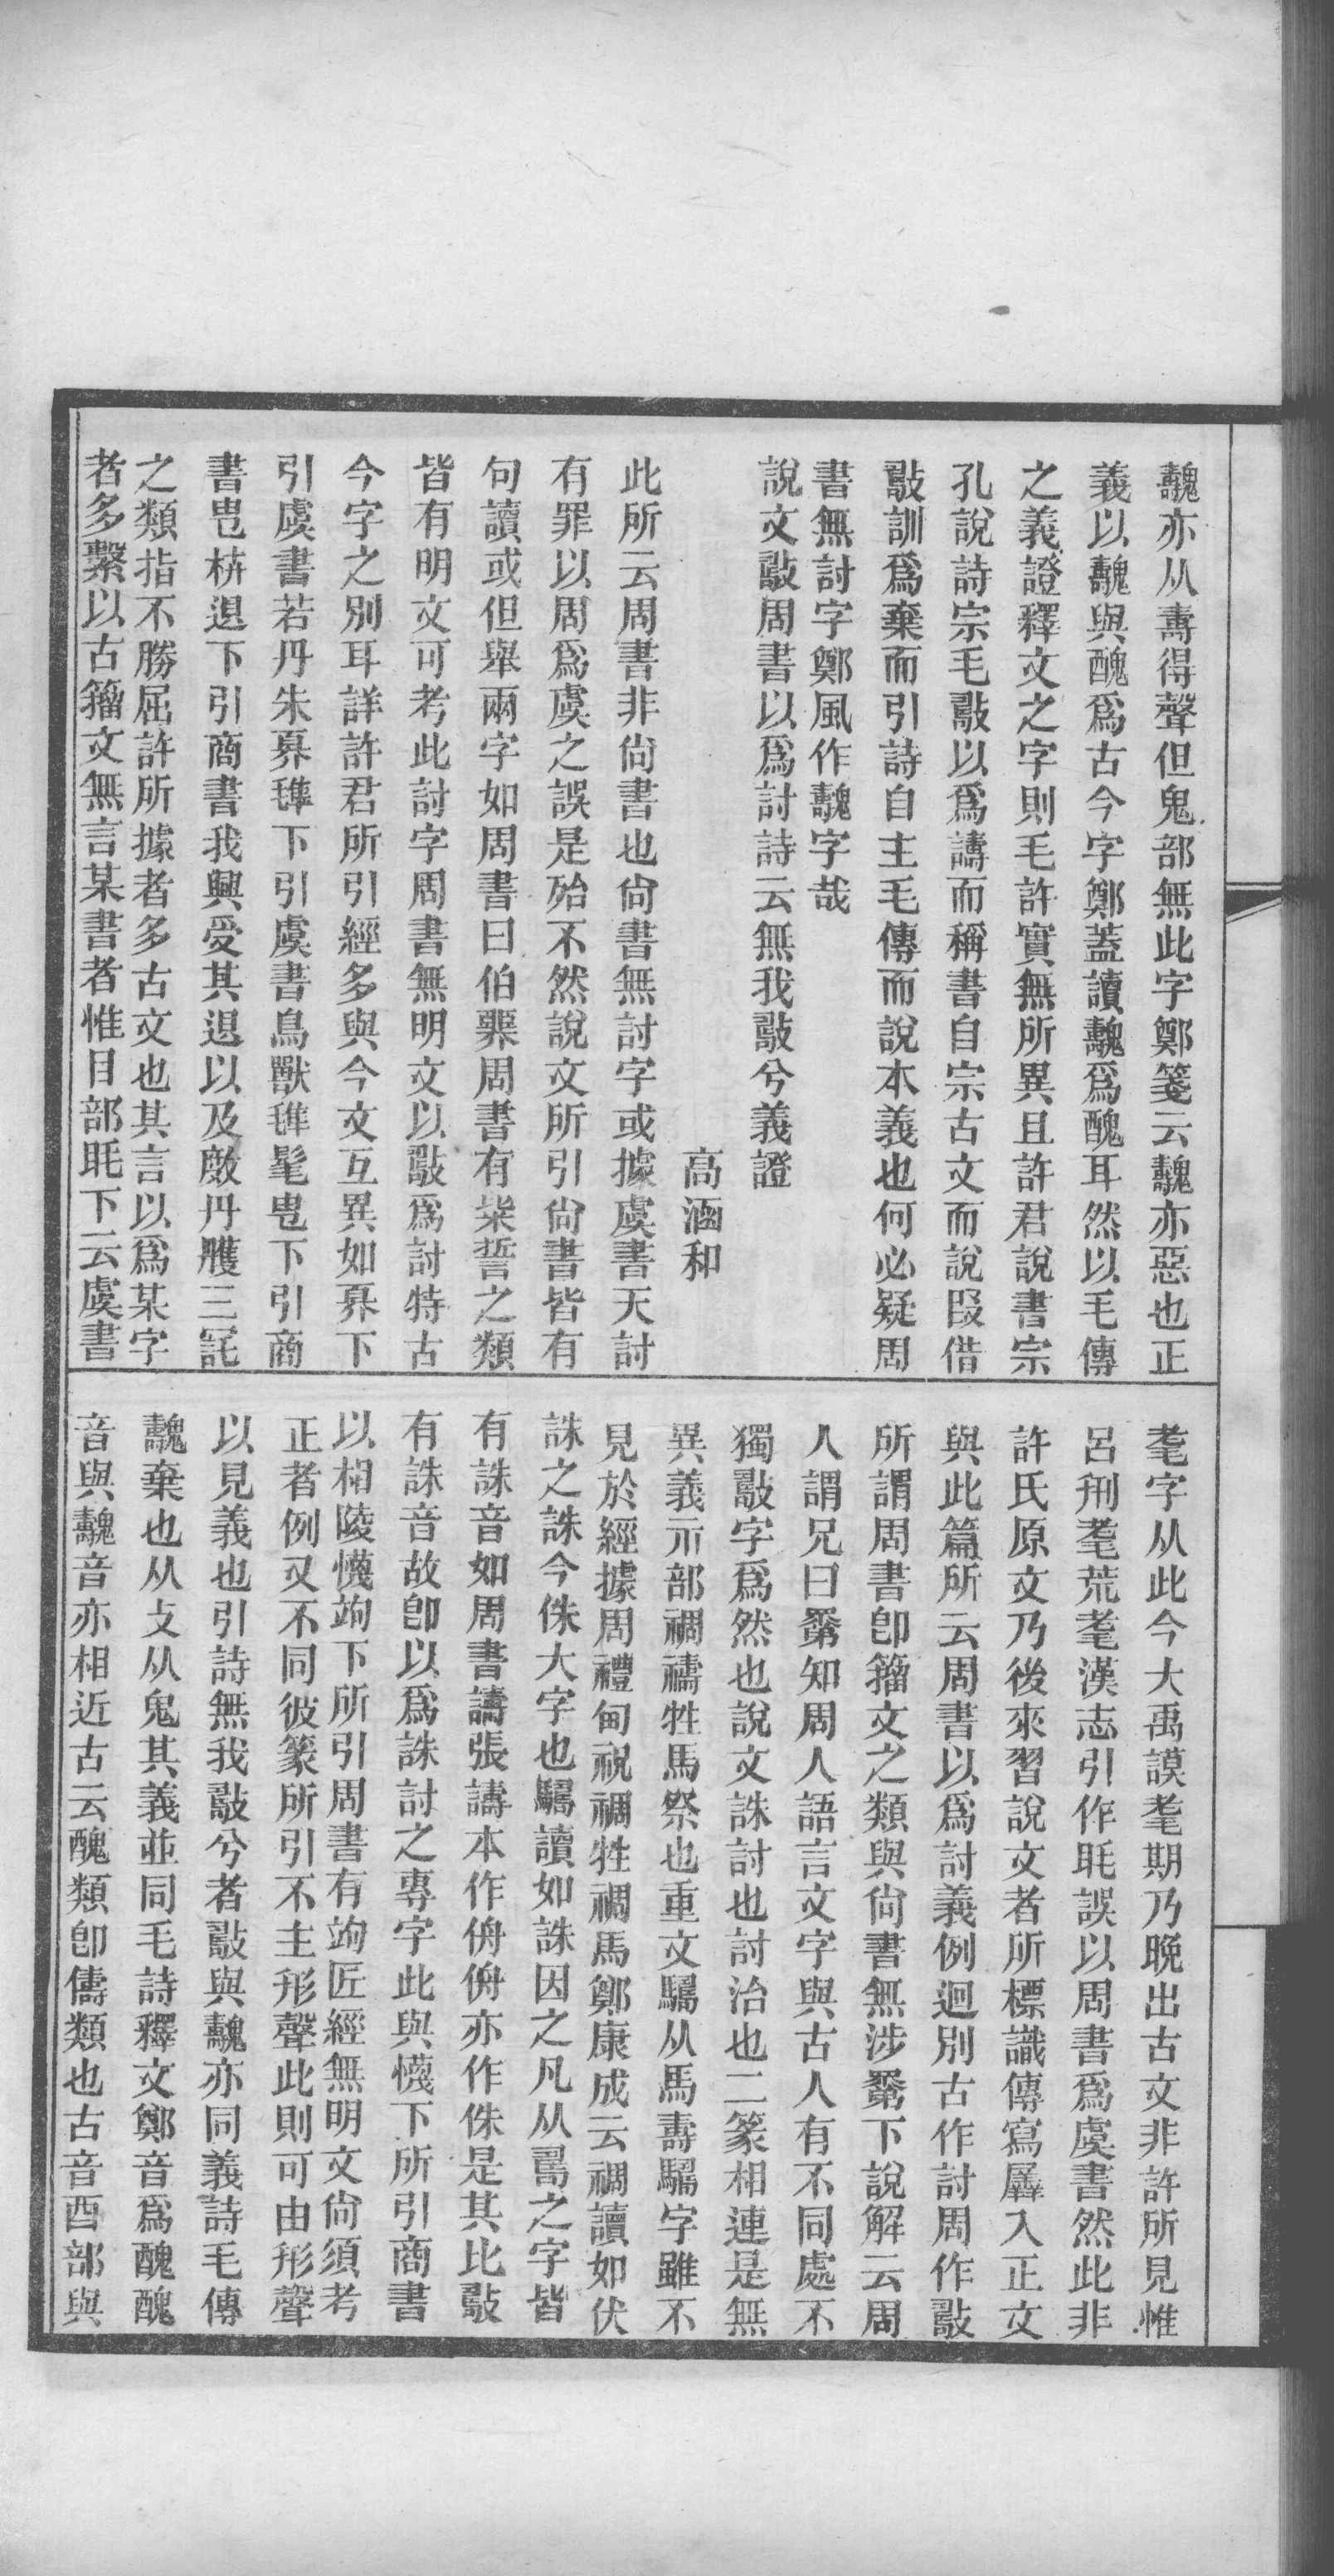 魗亦从壽得聲但鬼部無此字鄭箋云魗亦惡也正
義以魗與醜爲古今字鄭蓋讀魗爲醜耳然以毛傳
之義證釋文之字則毛許實無所異且許君說書宗
孔說詩宗毛敼以爲譸而稱書自宗古文而說叚借
敼訓爲棄而引詩自主毛傳而說本義也何必疑周
書無討字鄭風作魗字哉
說文敼周書以爲討詩云無我敼兮義證
高涵和
此所云周書非尙書也尙書無討字或據虞書天討
有罪以周爲虞之誤是殆不然說文所引尙書皆有
句讀或但舉兩字如周書曰伯臩周書有粊誓之類
皆有明文可考此討字周書無明文以敼爲討特古
今字之別耳詳許君所引經多與今文互異如奡下
引虞書若丹朱奡𣯍下引虞書鳥獸𣯍髦㞑下引商
書㞑枿退下引商書我興受其退以及敿丹雘三𡧪
之類指不勝屈許所據者多古文也其言以爲某字
者多繫以古籀文無言某書者惟目部眊下云虞書
耄字从此今大禹謨耄期乃晚出古文非許所見惟
呂刑耄荒耄漢志引作眊誤以周書爲虞書然此非
許氏原文乃後來習說文者所標識傳寫羼入正文
與此篇所云周書以爲討義例迥別古作討周作敼
所謂周書卽籀文之類與尙書無涉䍤下說解云周
人謂兄曰䍤知周人語言文字與古人有不同處不
獨敼字爲然也說文誅討也討治也二篆相連是無
異義示部禂禱牲馬祭也重文騳从馬壽騳字雖不
見於經據周禮甸祝禂牲禂馬鄭康成云禂讀如伏
誅之誅今侏大字也騳讀如誅因之凡从𠷎之字皆
有誅音如周書譸張譸本作侜侜亦作侏是其比敼
有誅音故卽以爲誅討之專字此與㦪下所引商書
以相陵㦪竘下所引周書有竘匠經無明文尙須考
正者例又不同彼篆所引不主形聲此則可由形聲
以見義也引詩無我敼兮者敼與魗亦同義詩毛傳
魗棄也从攴从鬼其義並同毛詩釋文鄭音爲醜醜
音與魗音亦相近古云醜類卽儔類也古音酉部與